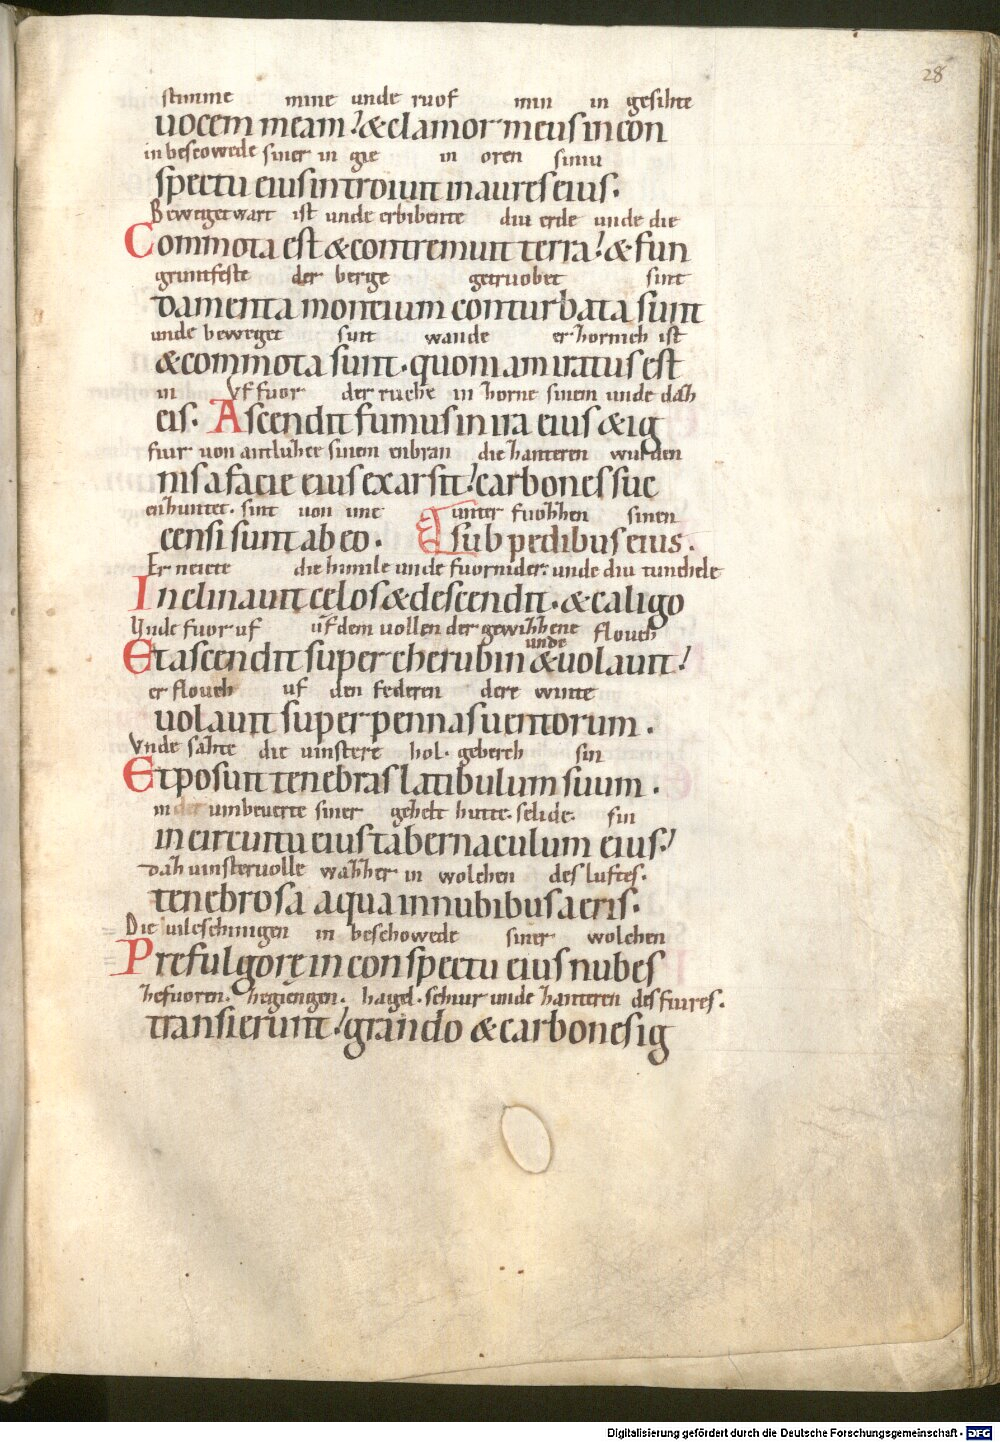 28
stimme mine unde ruof min in gesihte
uocem meam! & clamor meus in con
in bescowede siner in gie in oren siniu
spectu eius introiuit in aures eius.
Bewegetwart ist unde erbibente diu erde unde die
Commota est & contremuit terra! & fun
gruntfeste der berge getruobet sint
damenta montium conturbata sunt
unde beweget sunt wande er hornich ist
& commota sunt. quoniam iratus est
in Vf fuor der ruche in horne sinem unde dah
eis. Ascendit fumus in ira eius & ig
fiur uon antluhce sinem enbran die hanteren wurden
nis a facie eius exarsit! carbones suc
enhuntet. sint uon ime unter fuohhen sinen
censi sunt ab eo. & sub pedibus eius.
Er neicte die himile unde fuor nider. unde diu tunchele
Inclinauit celos & descendit. & caligo
Unde fuor uf uf dem uollen der gewihhene unde flouch
Et ascendit super cherubin & uolauit!
er flouch uf den federen dere winte
uolauit super pennas uentorum.
Vnde sahte die uinstere hol. geberch sin
Et posuit tenebras latibulum suum.
in umbeuerte siner gehelt hutte. selide. sin
in circuitu eius tabernaculum eius!
dah uinsteruolle wahher in wolchen des luftes.
tenebrosa aqua in nubibus aeris.
Die uileschinigen in beschowede siner wolchen
Prefulgorę in conspectu eius nubes
hefuoren. hegiengen. hagel. schiur unde hanteren des fiures.
transierunt! grando & carbones ig
Digitalisierung gefördert durch die Deutsche Forschungsgemeinschaft - DFG